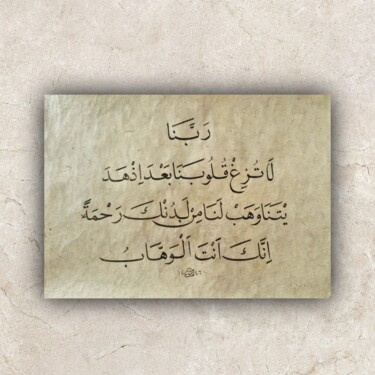 رَبَّنَا
لَا تُزِغْ قُلُوبَنَا بَعْدَ اِذْ هَدَ
يْتَنَا وَهَبْ لَنَا مِنْ لَدُنْكَ رَحْمَةً
اِنَّكَ اَنْتَ الْوَهَّابُ